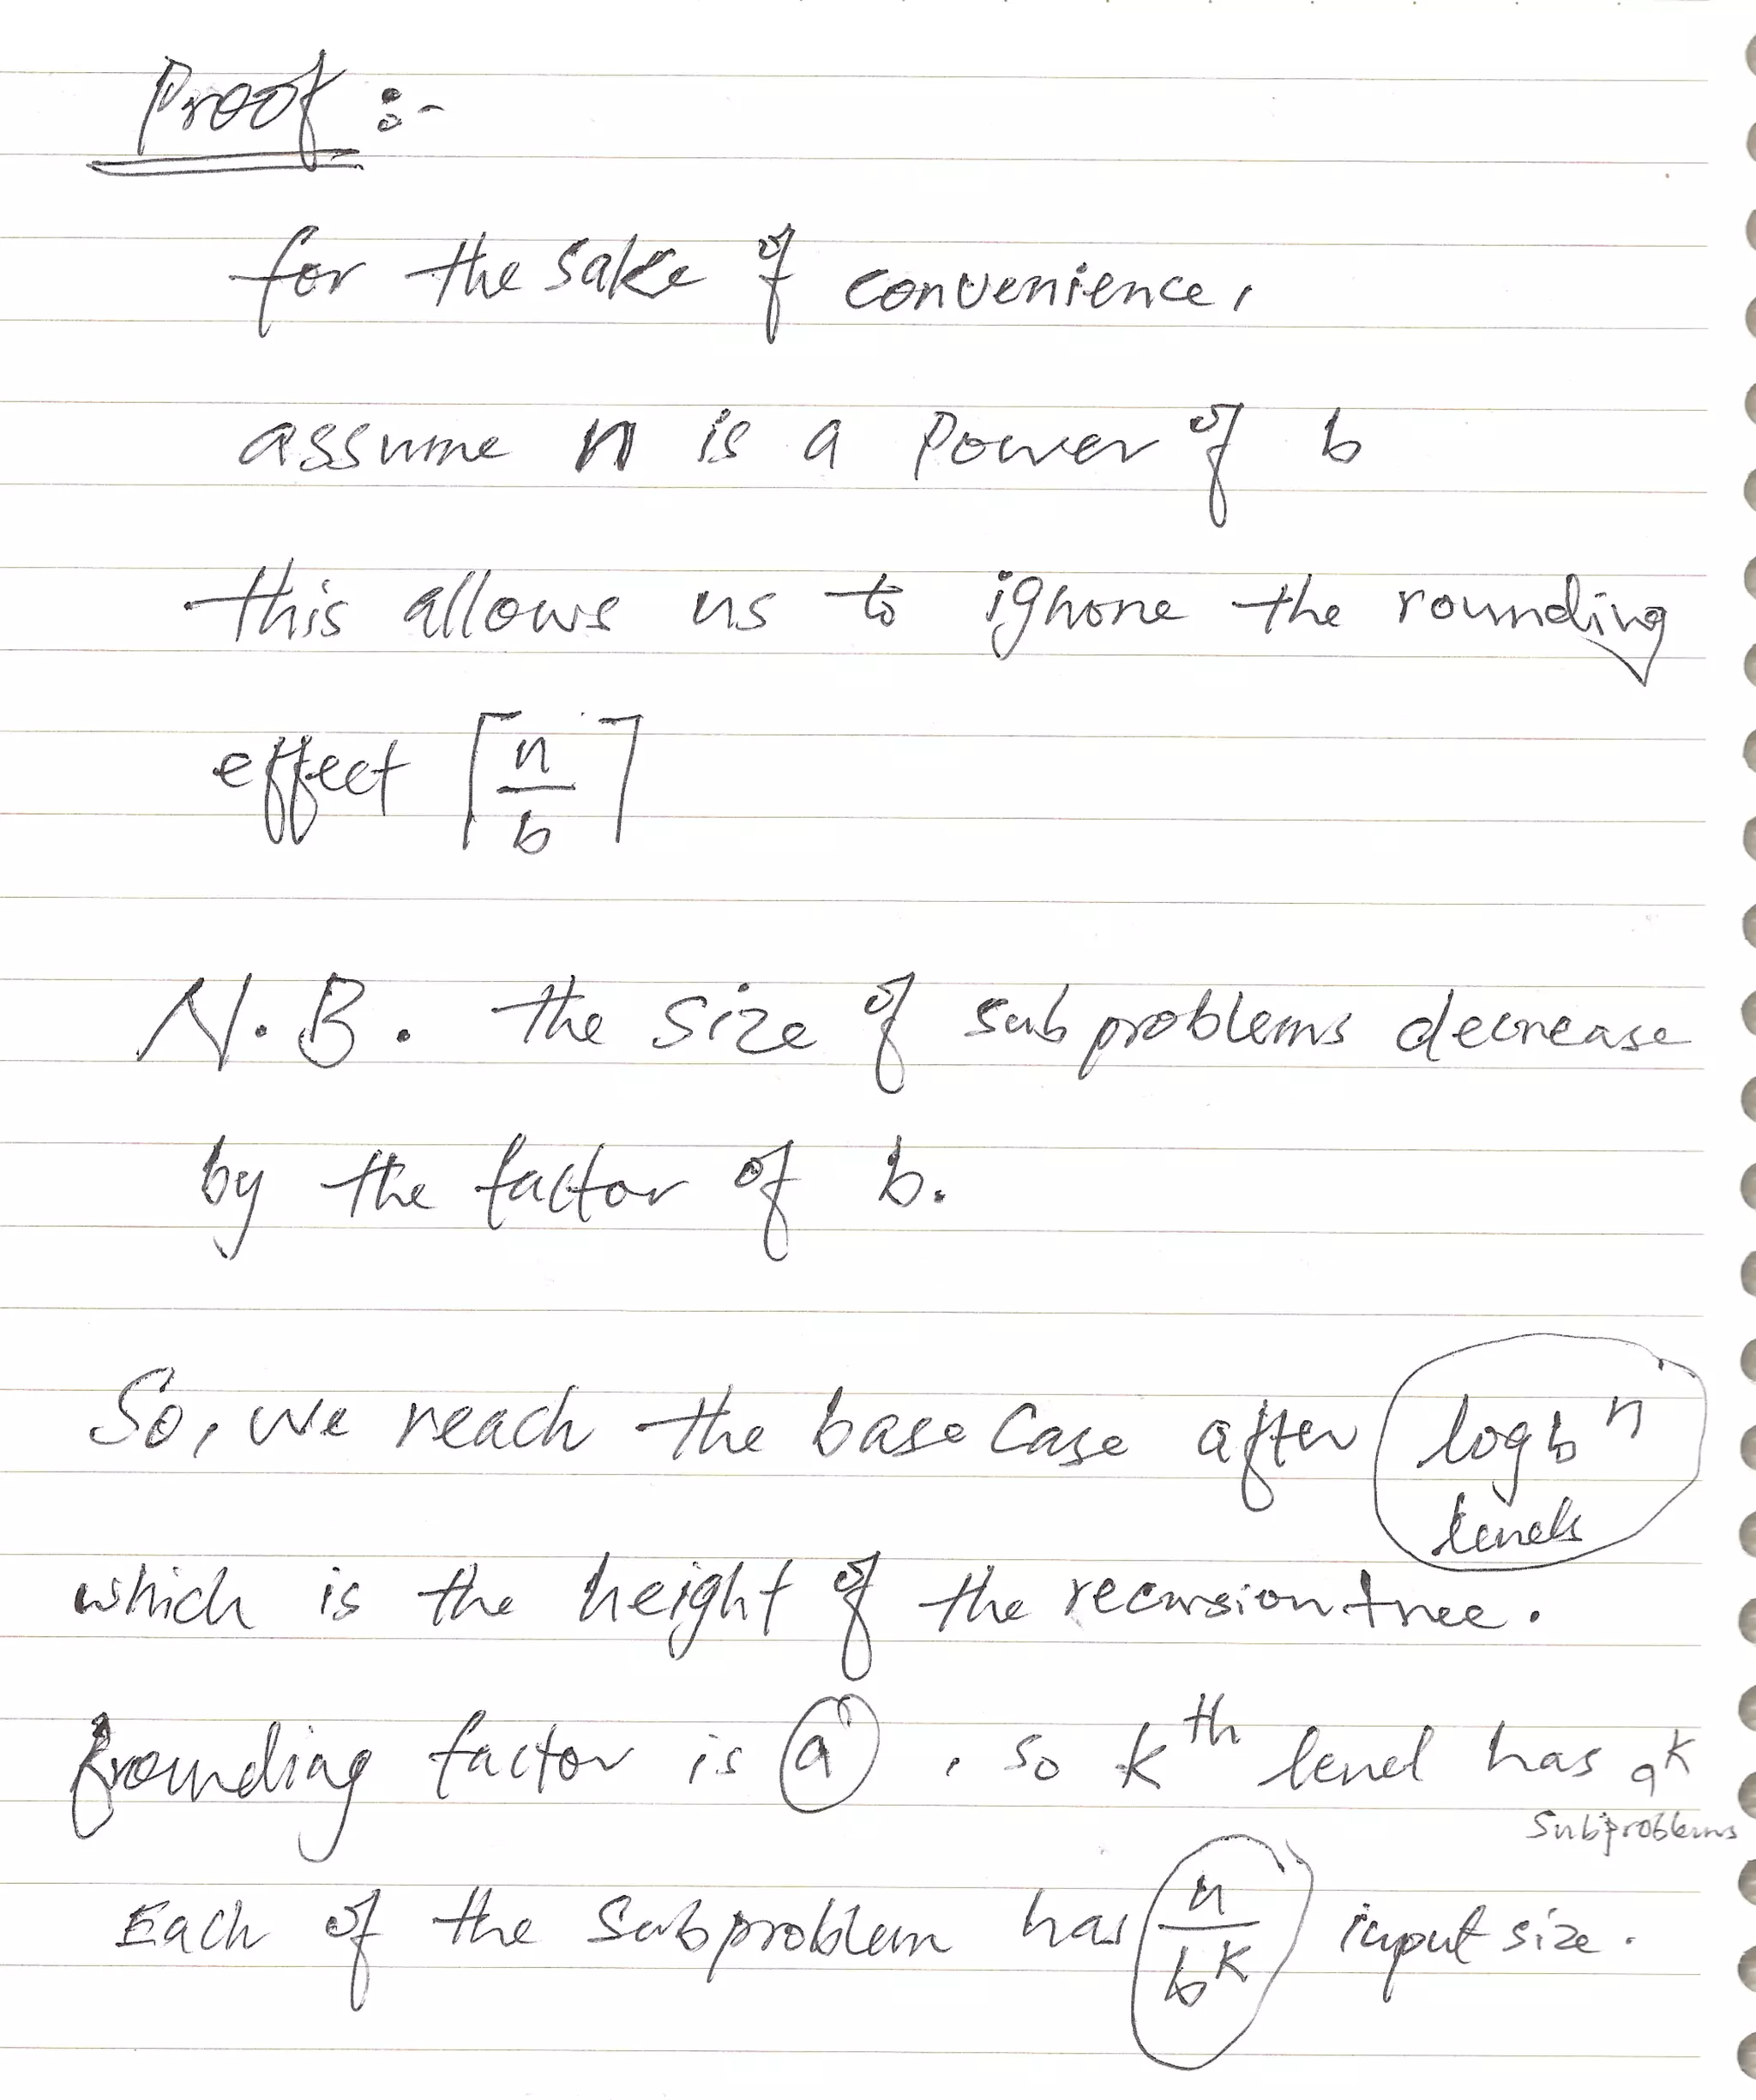 Proof :-
for the sake of convenience,
assume n is a power of b
this allows us to ignore the rounding
effect ⌈n/b⌉
N.B. the size of subproblems decrease
by the factor of b.
So, we reach the base case after log b n
levels
which is the height of the recursion tree.
factor is a, so kth level has a^k
subproblems
Each of the subproblem has n/b^k input size.